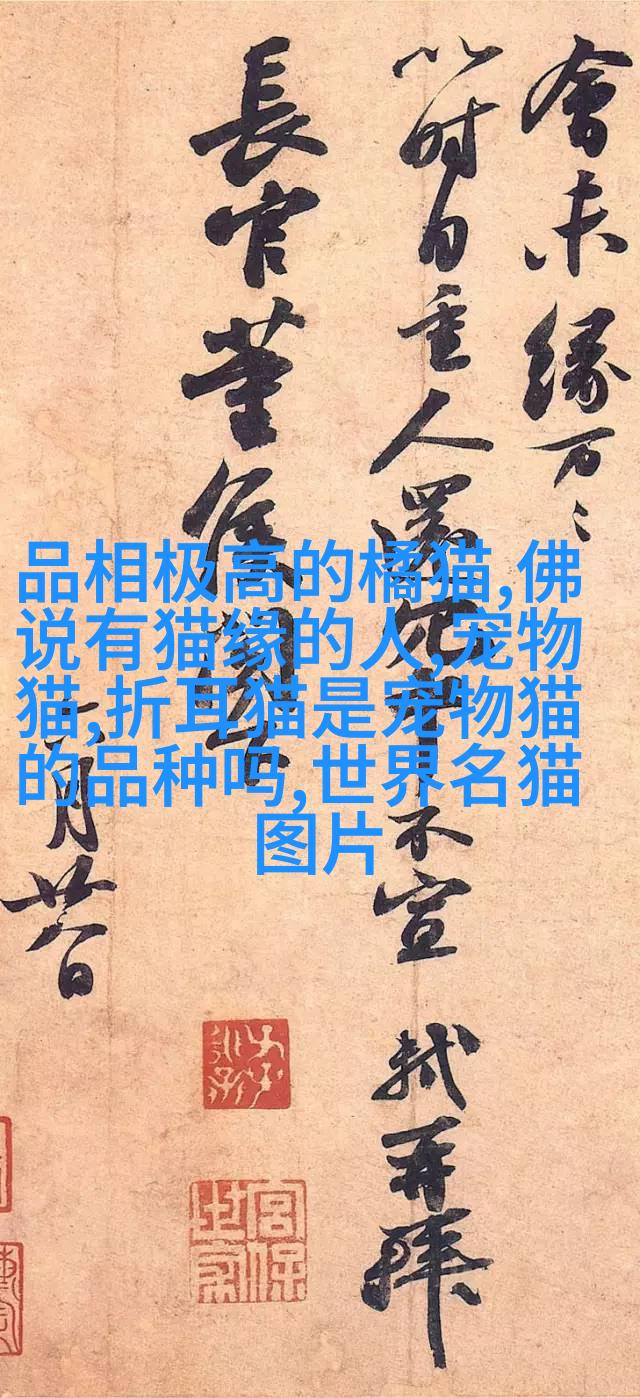 會未緣万〻
以时自重人還冗中不宣 軾再拜
長官董侯閣下
六月廿八日
宮保
世家
品相极高的橘猫,佛
说有猫缘的人,宠物
猫,折耳猫是宠物猫
的品种吗,世界名猫
图片